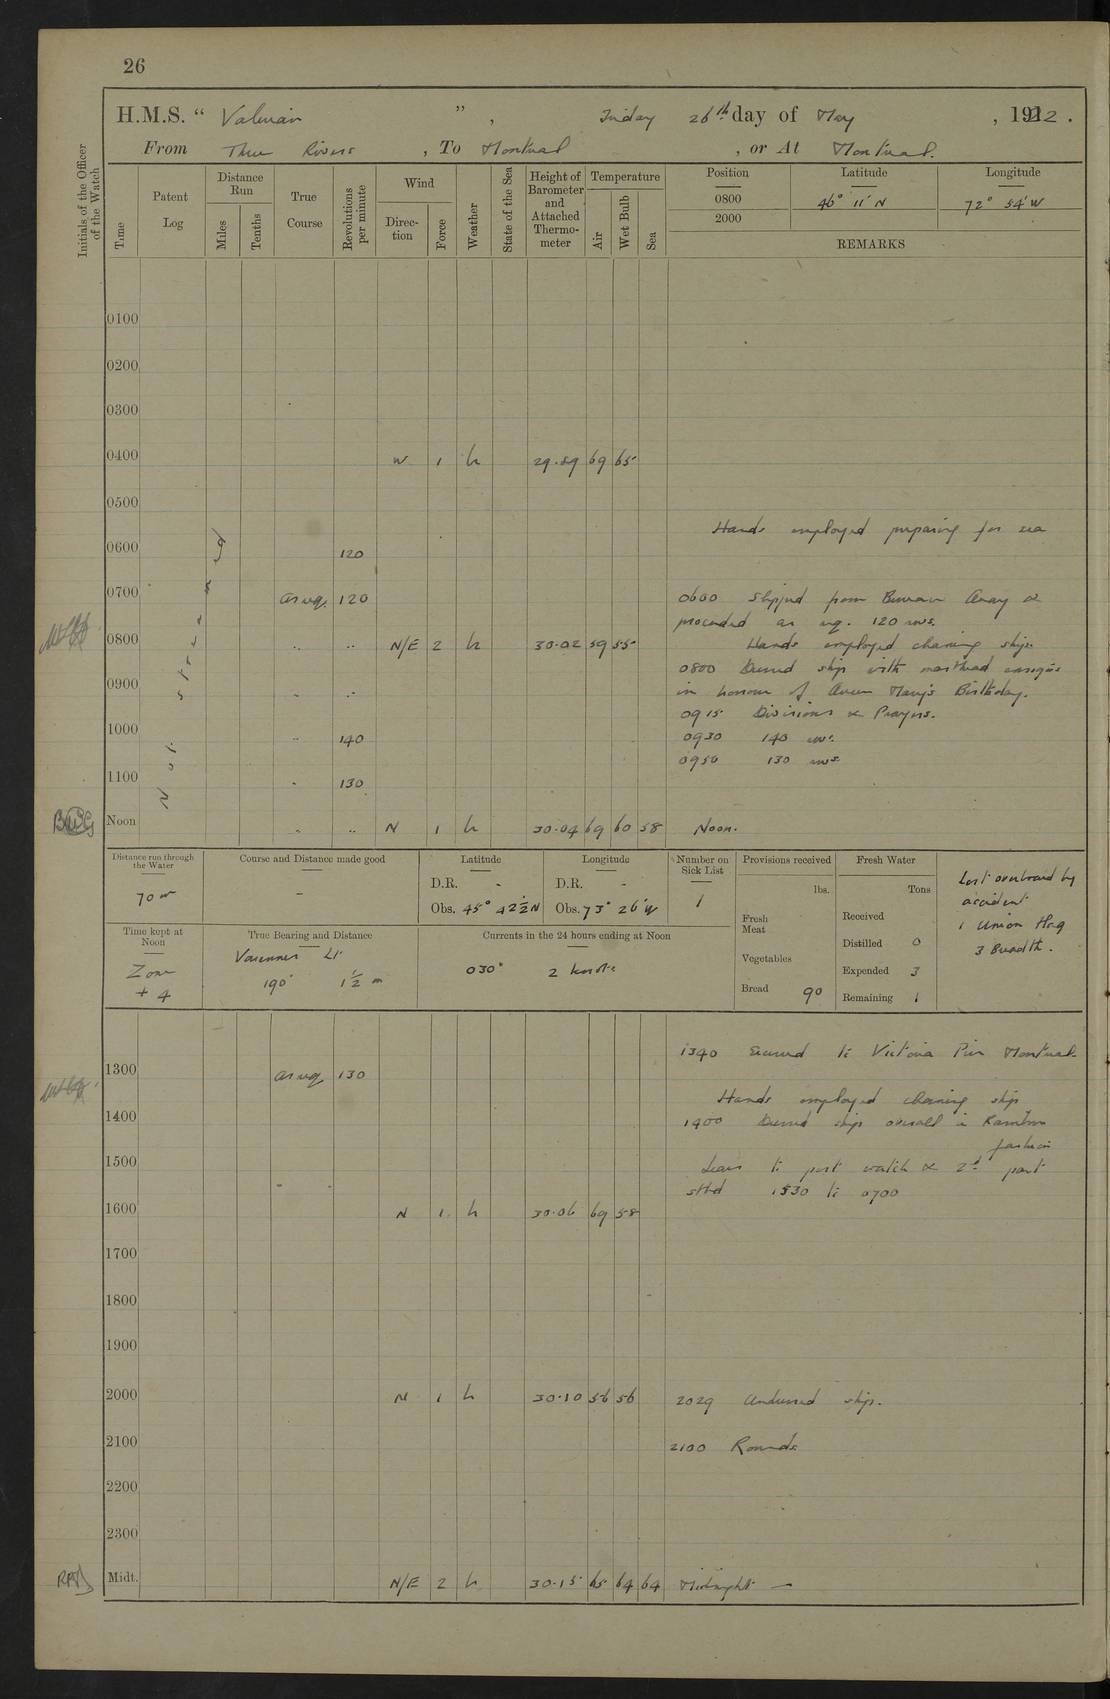 26
H.M.S. " Valerian ", Friday 26th day of May, 1922.
From Three Rivers, To Montreal, or At Montreal.
Initials of the Officer of the Watch
Time
Patent Log
Distance Run
Miles
Tenths
True Course
Revolutions per minute
Wind
Direction
Force
Weather
State of the Sea
Height of Barometer and Attached Thermometer
Temperature
Air
Wet Bulb
Sea
Position Latitude Longitude
0800 46° 11' N 72° 54' W
2000
REMARKS
0100
0200
0300
0400 W 1 h 29.89 69 65
0500
Hands employed preparing for sea
0600 120
0700 as req. 120 0600 Slipped from Bureau Quay &
proceeded as req. 120 revs.
0800 .. .. N/E 2 h 30.02 59 55 Hands employed cleaning ship.
0800 Dressed ship with masthead ensigns
0900 .. .. in honour of Queen Mary's Birthday.
0915 Divisions & Prayers.
1000 .. 140 0930 140 revs.
0950 130 revs
1100 .. 130
Not streamed
Noon .. .. N 1 h 30.04 69 60 58 Noon.
Distance run through the Water
70 m
Course and Distance made good
-
Latitude
D.R. -
Obs. 45° 42½ N
Longitude
D.R. -
Obs. 73° 26' W
Number on Sick List
1
Provisions received
lbs.
Fresh Meat
Vegetables
Bread 90
Fresh Water
Tons
Received
Distilled 0
Expended 3
Remaining 1
Lost overboard by
accident
1 Union Flag
3 Breadth.
Time kept at Noon
Zone
+ 4
True Bearing and Distance
Varennes Lt.
190° 1½ m
Currents in the 24 hours ending at Noon
030° 2 knots
1340 Secured to Victoria Pier Montreal.
1300 as req 130
Hands employed cleaning ship
1400 1400 Dressed ship overall in Rainbow
fashion
1500 Leave to port watch & 2d part
stbd 1530 to 0700
1600 N 1 h 30.06 69 58
1700
1800
1900
2000 N 1 h 30.10 56 56 2029 Undressed ship.
2100 2100 Rounds
2200
2300
Midt. N/E 2 h 30.15 65 64 64 Midnight —